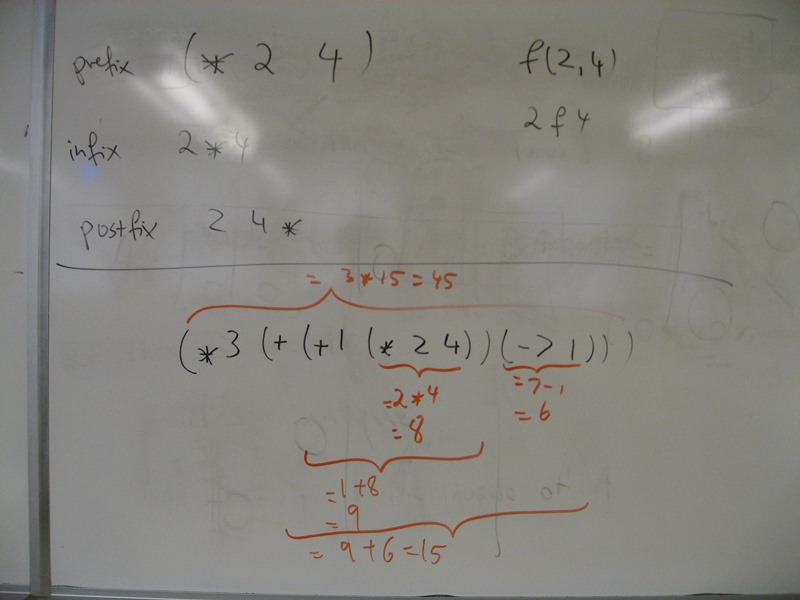 prefix (* 2 4) f(2,4)
2 f 4
infix 2 * 4
postfix 2 4 *
= 3*15 = 45
(*3 (+ (+1 (* 2 4)) (- 7 1)))
=2*4 =7-1
=8 =6
=1+8
=9
= 9+6=15